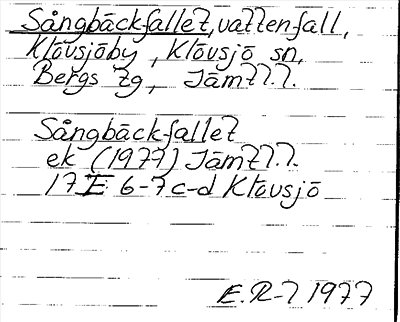 Sångbäckfallet, vattenfall,
Klövsjöby, Klövsjö sn,
Bergs tg, Jämtl.l.
Sångbäckfallet
ek (1977) Jämtl.l.
17E 6-7c-d Klövsjö
E.R-l 1977